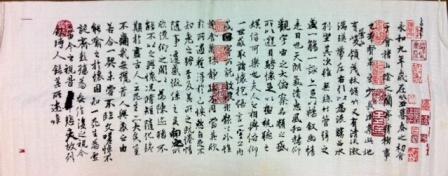 永和九年歲在癸丑暮春之初會
于會稽山陰之蘭亭脩稧事
也羣賢畢至少長咸集此地
有崇領茂林脩竹又有清流激
湍暎帶左右引以為流觴曲水
列坐其次雖無絲竹管弦之
盛一觴一詠亦足以暢敘幽情
是日也天朗氣清惠風和暢仰
觀宇宙之大俯察品類之盛
所以遊目騁懷足以極視聽之
娛信可樂也夫人之相與俯仰
一世或取諸懷抱悟言一室之內
或因寄所託放浪形骸之外雖
趣舍萬殊靜躁不同當其欣
於所遇暫得於己快然自足不
知老之將至及其所之既惓情
隨事遷感慨係之矣向之所
欣俛仰之間以為陳迹猶不
能不以之興懷況脩短隨化終
期於盡古人云死生亦大矣豈
不痛哉每攬昔人興感之由
若合一契未嘗不臨文嗟悼不
能喻之於懷固知一死生為虛
誕齊彭殤為妄作後之視今
亦由今之視昔悲夫故列
敘時人錄其所述